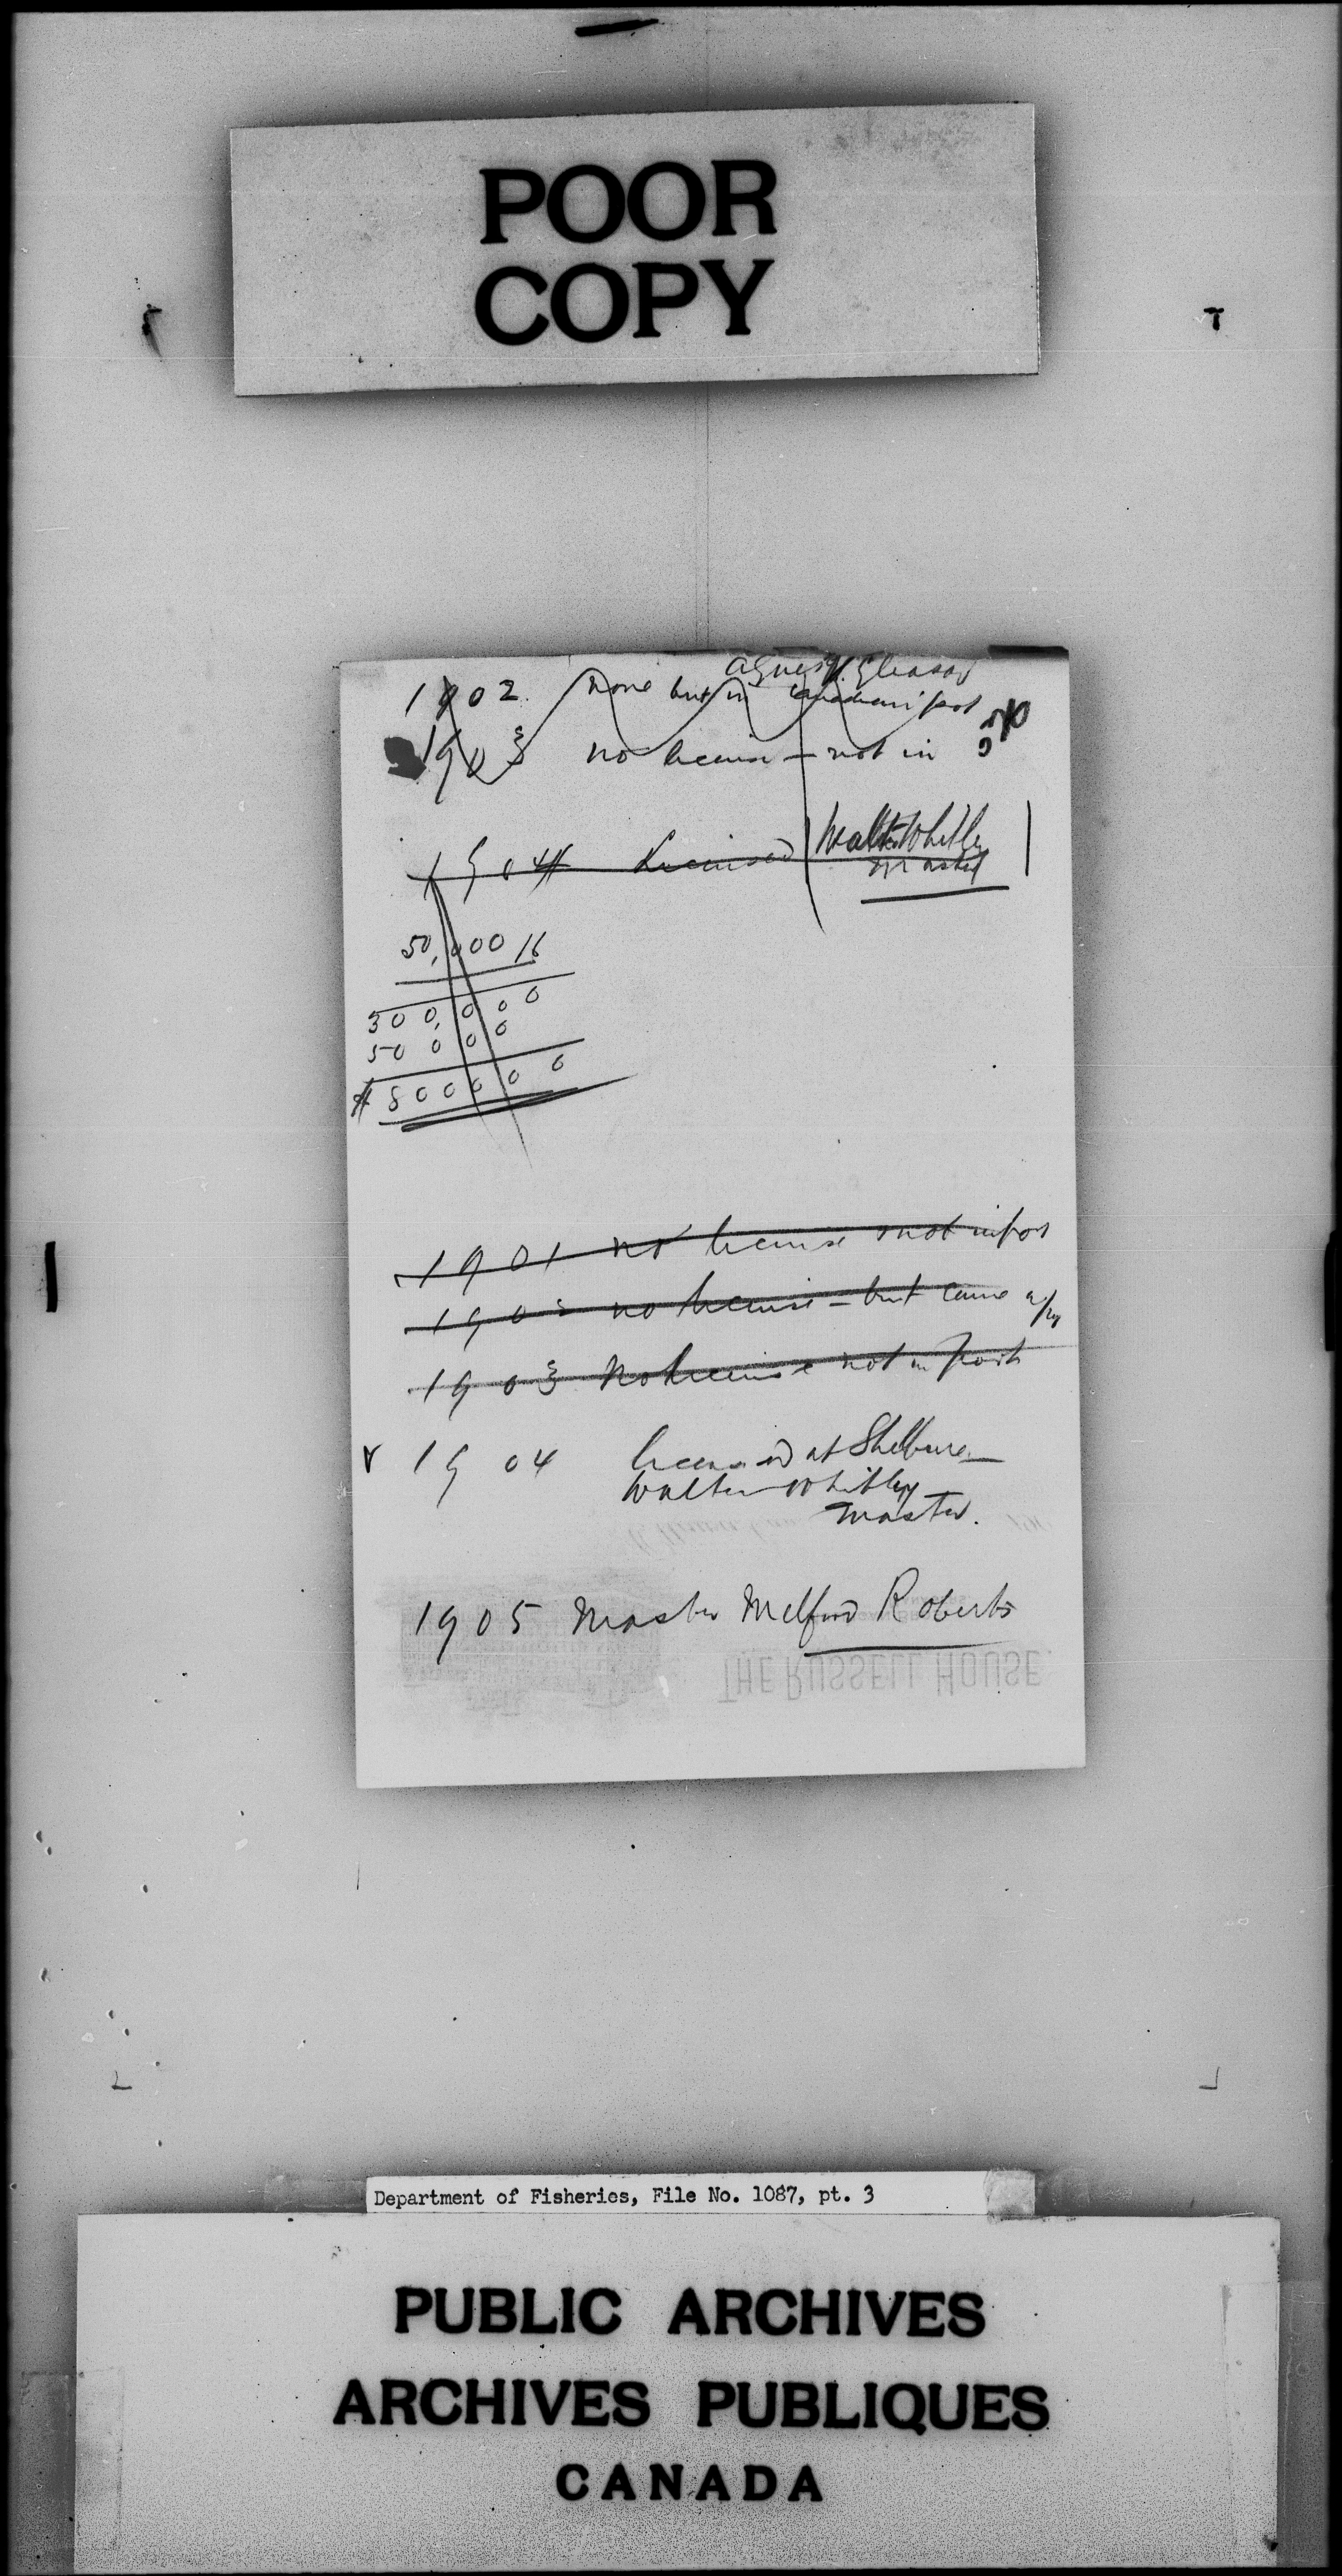 POOR
COPY
Agnes Gleason
1902. none but in Canadian port
1903 no license - not in
1904 Licensed Walter Whitley
Master
50,000 16
300,000
50000
$ 800000
1901 no license not in port
190 no license - but came
1903 No license not in port
1904 licensed at Shelburne
Walter Whitley
Master.
1905 Master Melford Roberts
THE RUSSELL HOUSE.
Department of Fisheries, File No. 1087, pt. 3
PUBLIC ARCHIVES
ARCHIVES PUBLIQUES
CANADA